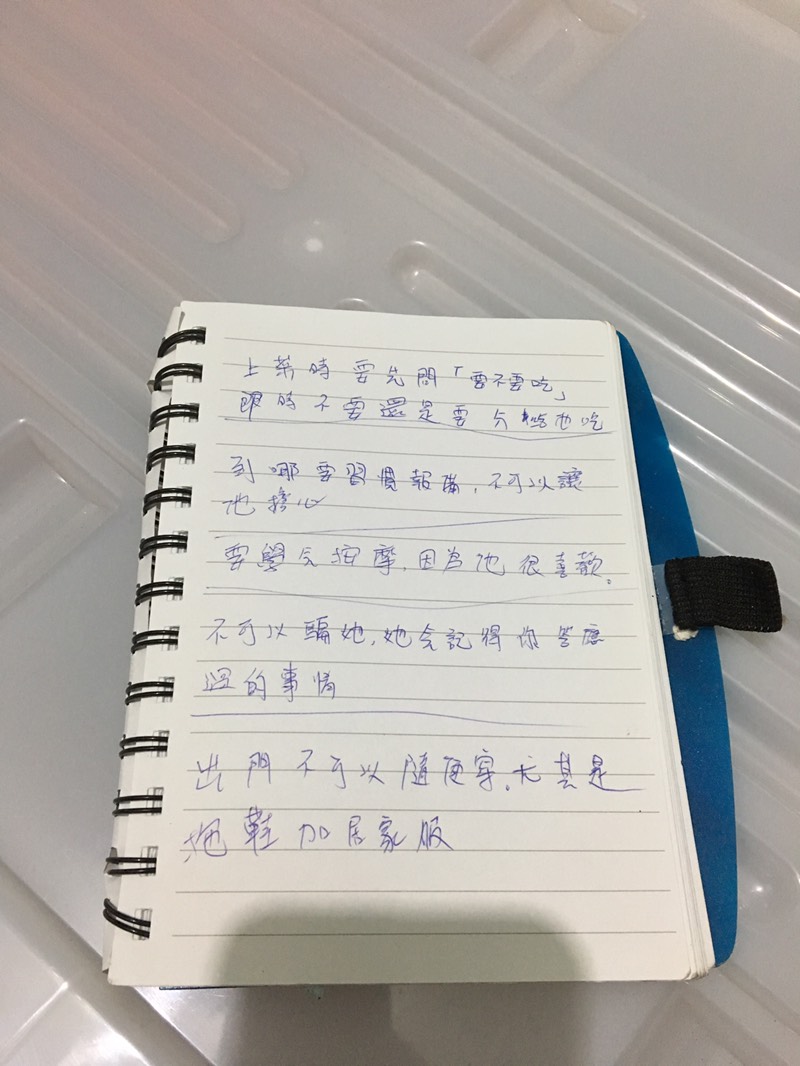 上菜時要先問「要不要吃」
即時不要還是要分她吃
到哪要習慣報備,不可以讓
他擔心
要學会按摩,因為他很喜歡。
不可以騙她,她会記得你答應
過的事情
出門不可以隨便穿,尤其是
拖鞋加居家服